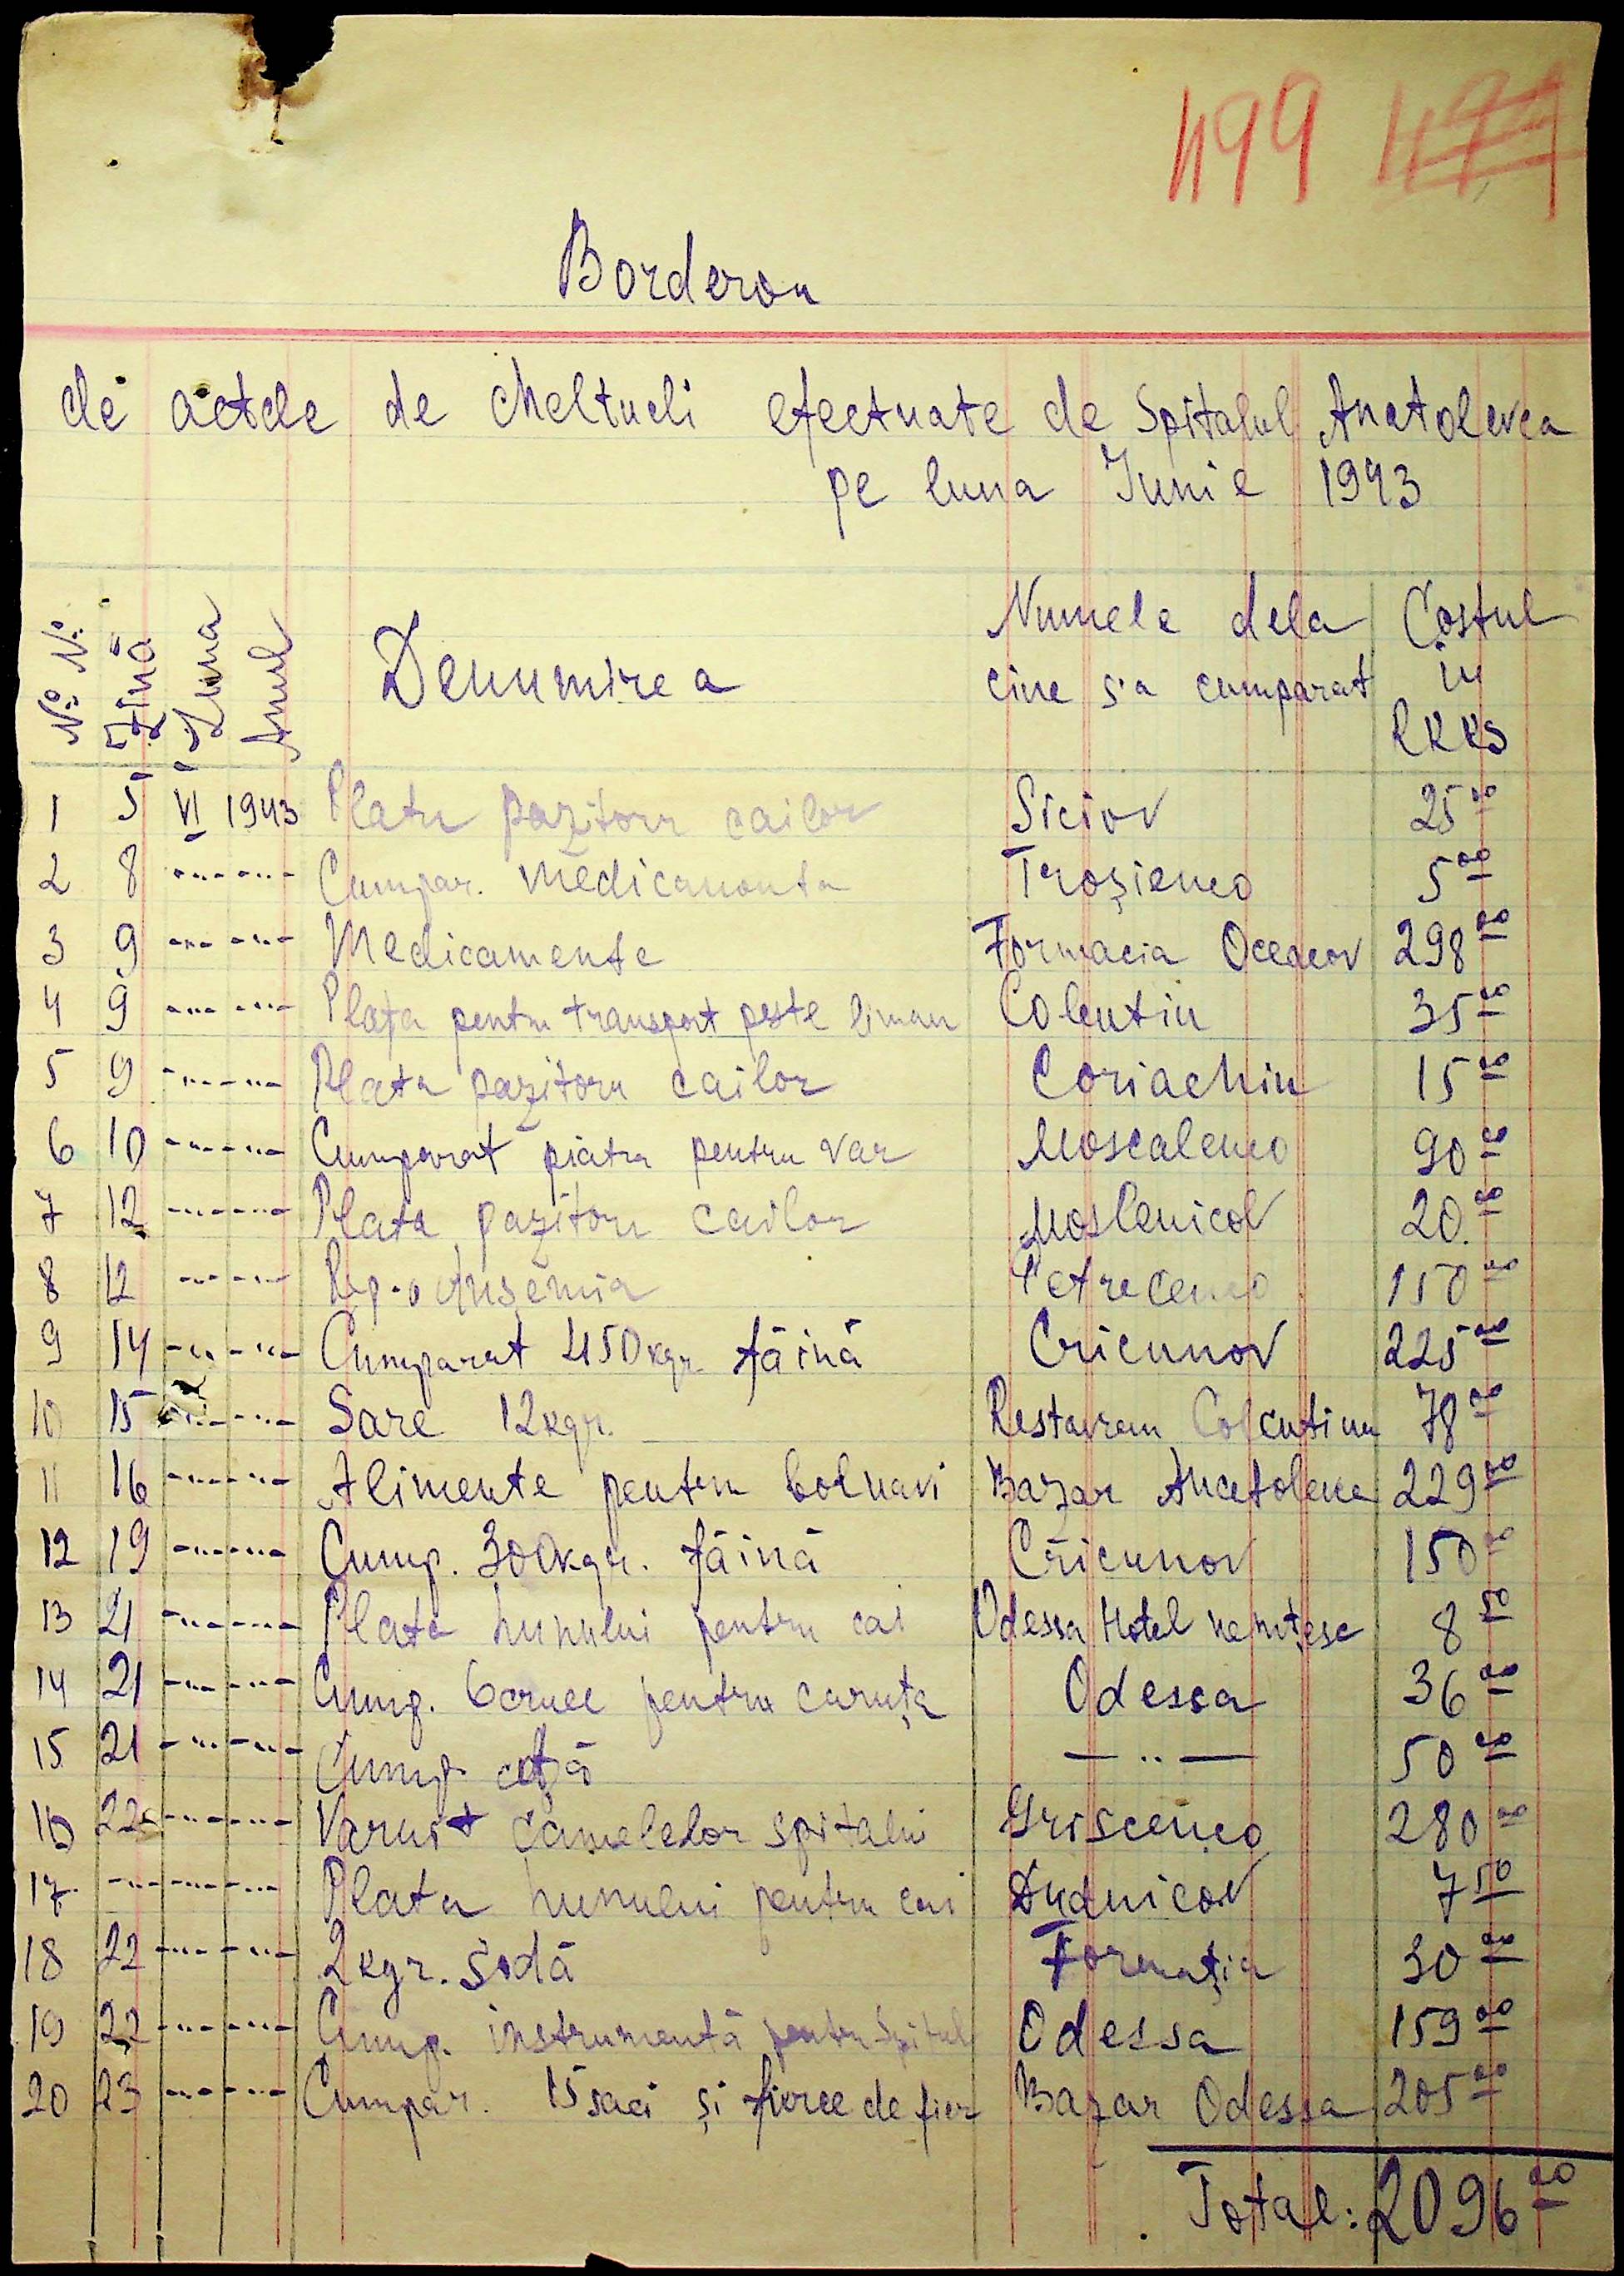 499 499
Borderou
de actele de cheltueli efectuate de Spitalul Anatolevca
pe luna Iunie 1943
№ № Ziua Luna Anul Denumirea Numele dela cine s'a cumparat Costul in RKKS
1 5 VI 1943 Plata pazitoru cailor Siciov 25 00
2 8 -"- -"- Cumpar. medicamenta Troșienco 5 00
3 9 -"- -"- Medicamente Formacia Oceacov 298 00
4 9 -"- -"- Plata pentru transport peste liman Colentin 35 00
5 9 -"- -"- Plata pazitoru cailor Coriachin 15 00
6 10 -"- -"- Cumparat piatra pentru var Moscalenco 90 00
7 12 -"- -"- Plata pazitoru cailor Moslenicov 20 00
8 12 -"- -"- Petrecenco 150 00
9 14 -"- -"- Cumparat 450 kgr. făină Cricunov 225 00
10 15 -"- -"- Sare 12 kgr. Restauran Colentina 78 00
11 16 -"- -"- Alimente pentru bolnavi Bazar Anatolevca 229 00
12 19 -"- -"- Cump. 300 kgr. făină Cricunov 150 00
13 21 -"- -"- Plata hunului pentru cai Odessa Hotel nemțesc 8 50
14 21 -"- -"- Cump. pentru caruța Odessa 36 00
15 21 -"- -"- Cump. — " — 50 00
16 22 -"- -"- Varuit camelelor spitalui Griscenco 280 00
17 -"- -"- -"- Plata hunului pentru cai Dudnicov 7 50
18 22 -"- -"- 2 kgr. sodă Formația 30 00
19 22 -"- -"- Cump. instrumentă pentru Spital Odessa 159 00
20 23 -"- -"- Cumpar. 15 saci și de fier Bazar Odessa 205 00
Total: 2096 00